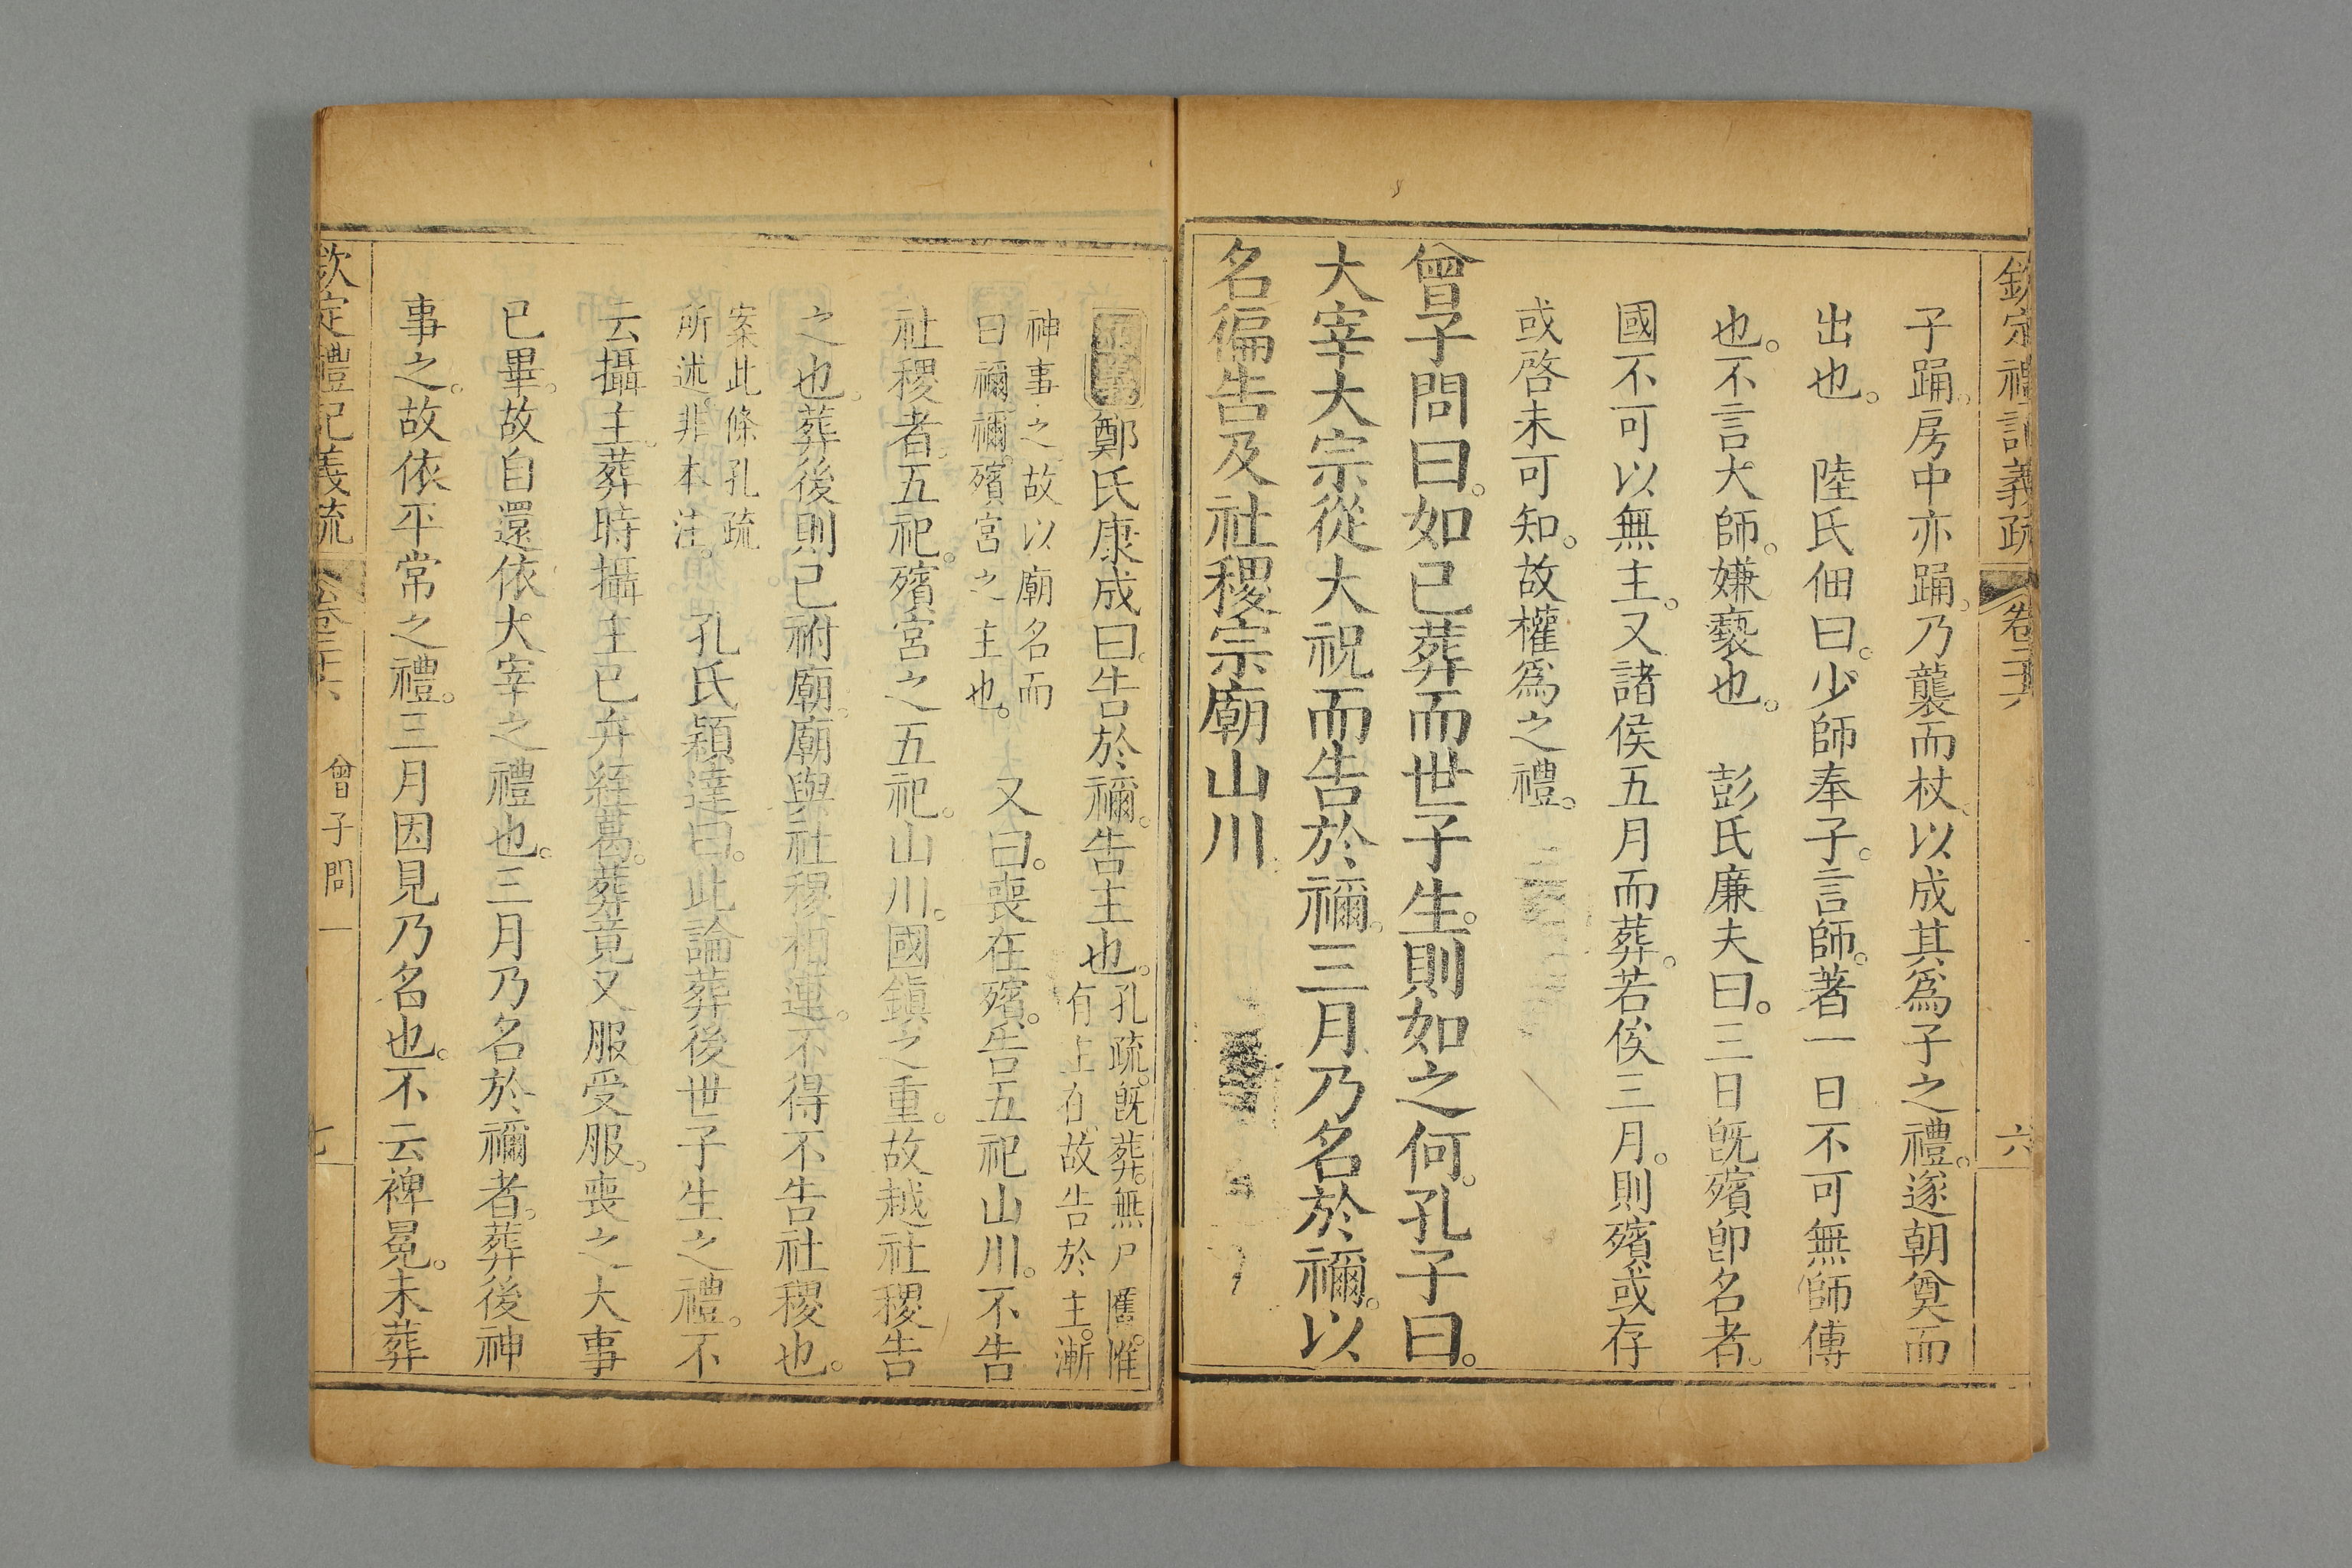 欽定禮記義疏 卷二十六 六
子踊。房中亦踊。乃襲而杖、以成其爲子之禮。遂朝奠而
出也。 陸氏佃曰。少師奉子。言師。著一日不可無師傅
也。不言大師。嫌褻也。 彭氏廉夫曰。三日旣殯卽名者。
國不可以無主。又諸侯五月而葬。若俟三月。則殯或存
或啓未可知。故權爲之禮。
曾子問曰。如已葬而世子生。則如之何。孔子曰。
大宰大宗從大祝而告於禰。三月乃名於禰。以
名徧告及社稷宗廟山川
鄭氏康成曰。告於禰。告主也。孔疏。旣葬。無尸柩。惟
有主在。故告於主。漸
神事之。故以廟名而
曰禰。禰。殯宮之主也。 又曰。喪在殯。告五祀山川。不告
社稷者。五祀。殯宮之五祀。山川。國鎮之重。故越社稷告
之也。葬後則已祔廟。廟與社稷相連。不得不告社稷也。
案此條孔疏
所述。非本注。 孔氏穎達曰。此論葬後世子生之禮。不
云攝主。葬時攝主已弁絰葛。葬竟又服受服。喪之大事
已畢。故自還依大宰之禮也。三月乃名於禰者。葬後神
事之。故依平常之禮。三月因見乃名也。不云裨冕。未葬
欽定禮記義疏 卷二十六 曾子問一 七